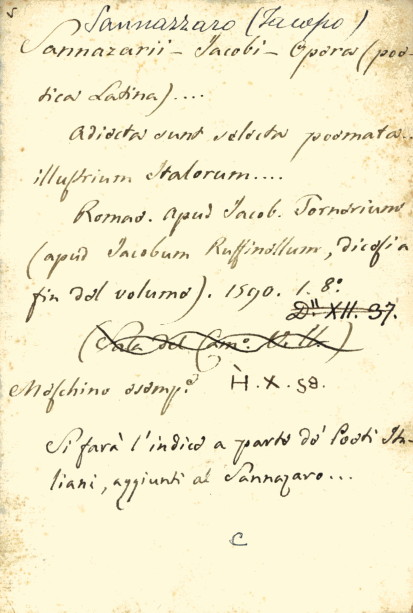 S
Sannazzaro (Jacopo)
Sannazarii - Jacobi - Opera (poe-
tica Latina)....
Adiecta sunt selecta poemata..
illustrium Italorum....
Romae. apud Jacob. Tornerium
(apud Jacobum Ruffinellum, dicesi a
fin del volume). 1590. 1. 8.º
D." XII. 37.
(Sala del Cam.º
Meschino esemp.º H.X.58.
Si farà l'indice a parte de' Poeti Ita-
liani, aggiunti al Sannazaro...
C